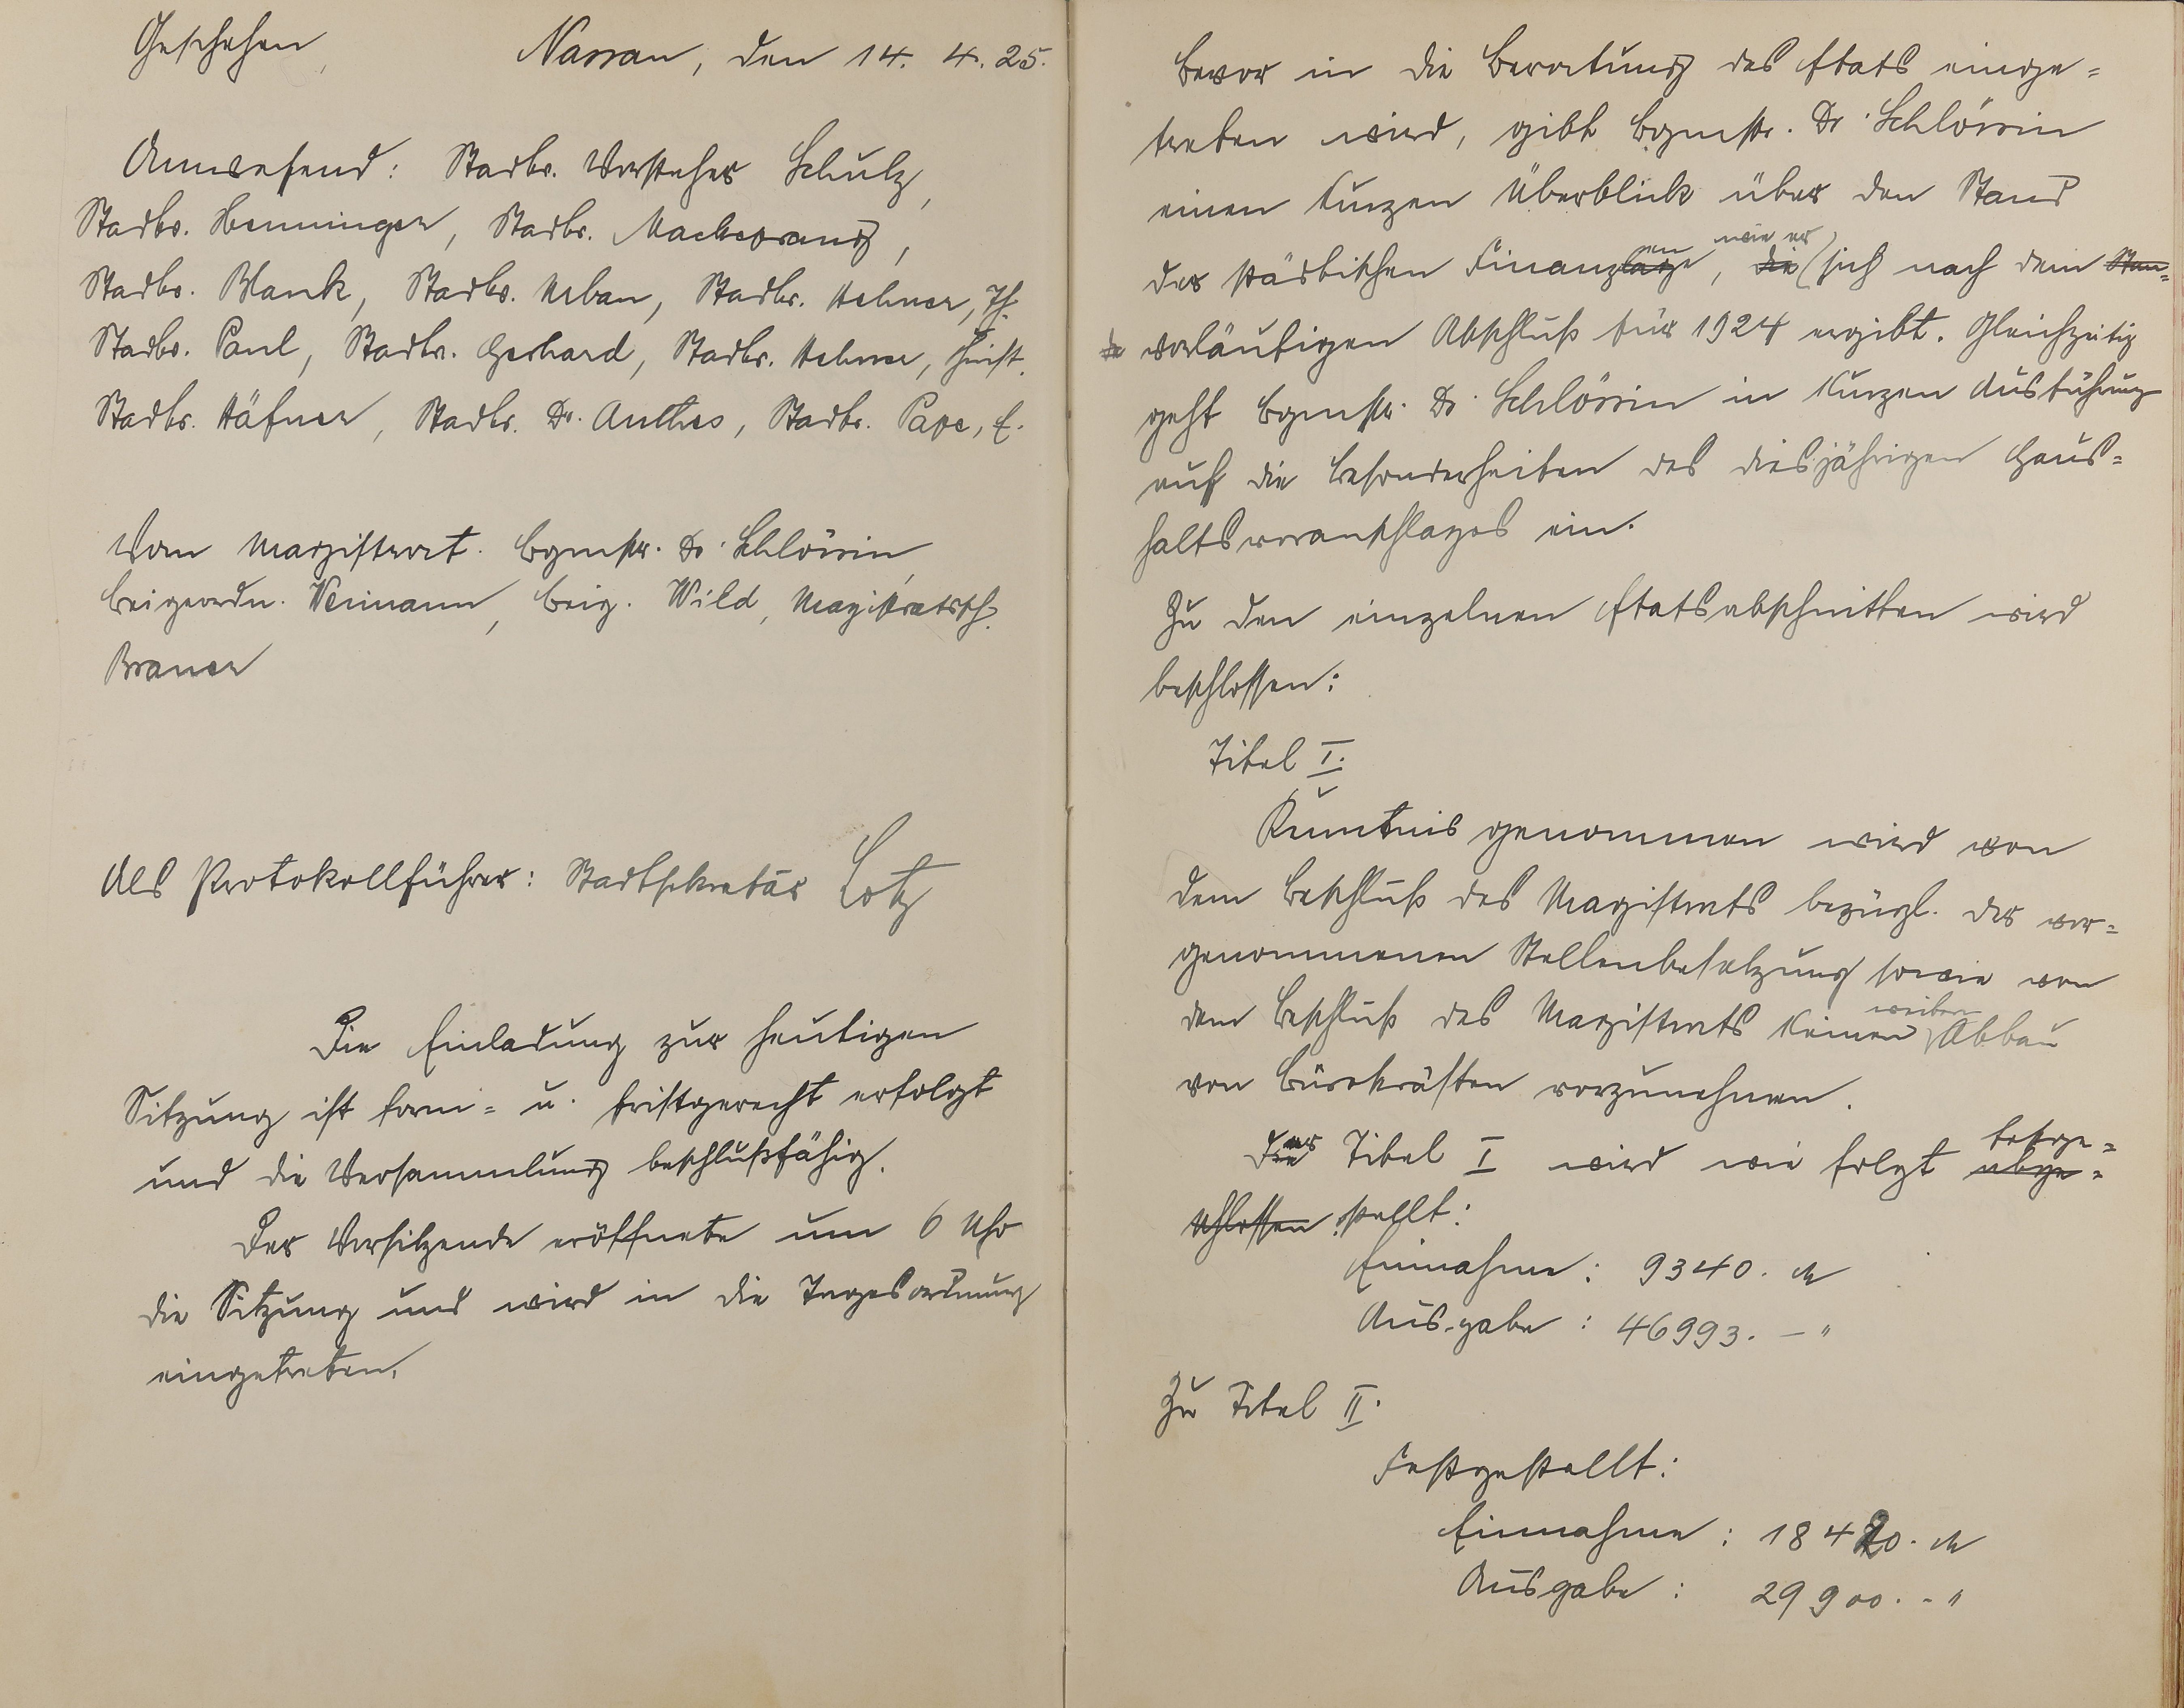 Geschehen, Nassau, den 14. 4. 25.
Anwesend: Stadtv. Vorsteher Schulz,
Stadtv. Henninger, Stadtv. Mackeprang,
Stadtv. Blank, Stadtv. Urban, Stadtv. Hehner, Th.
Stadtv. Paul, Stadtv. Gerhard, Stadtv. Hehner, Christ.
Stadtv. Häfner, Stadtv. Dr. Anthes, Stadtv. Pape, E.
Vom Magistrat. Bgmstr. Dr. Schlössin,
Beigeordn. Weimann, Beig. Wild, Magistratssch.
Brauer
Als Protokollführer: Stadtsekretär Lotz
Die Einladung zur heutigen
Sitzung ist form- u. fristgerecht erfolgt
und die Versammlung beschlußfähig.
Der Vorsitzende eröffnete um 6 Uhr
die Sitzung und wird in die Tagesordnung
eingetreten.
Bevor in die Beratung des Etats einge-
treten wird, gibt Bgmstr. Dr. Schlössin
einen kurzen Überblick über den Stand
en wie er
der städtischen Finanzlage, die sich nach dem Stan-
vorläufigen Abschluß für 1924 ergibt. Gleichzeitig
geht Bgmstr. Dr. Schlössin in kurzen Ausführung
auf die Besonderheiten des diesjährigen Haus-
haltsvoranschlages ein.
Zu den einzelnen Etatsabschnitten wird
beschlossen:
Titel I.
Kenntnis genommen wird von
dem Beschluß des Magistrats bezügl. der vor-
genommenen Stellenbesetzung sowie von
weitern
dem Beschluß des Magistrats keinen Abbau
von Bürokräften vorzunehmen.
festge-
Der Titel I wird wie folgt abge-
schlossen stellt:
Einnahme: 9340. M
Ausgabe: 46993. – "
Zu Titel II.
Festgestellt:
Einnahme: 18420. M
Ausgabe: 29900. - "